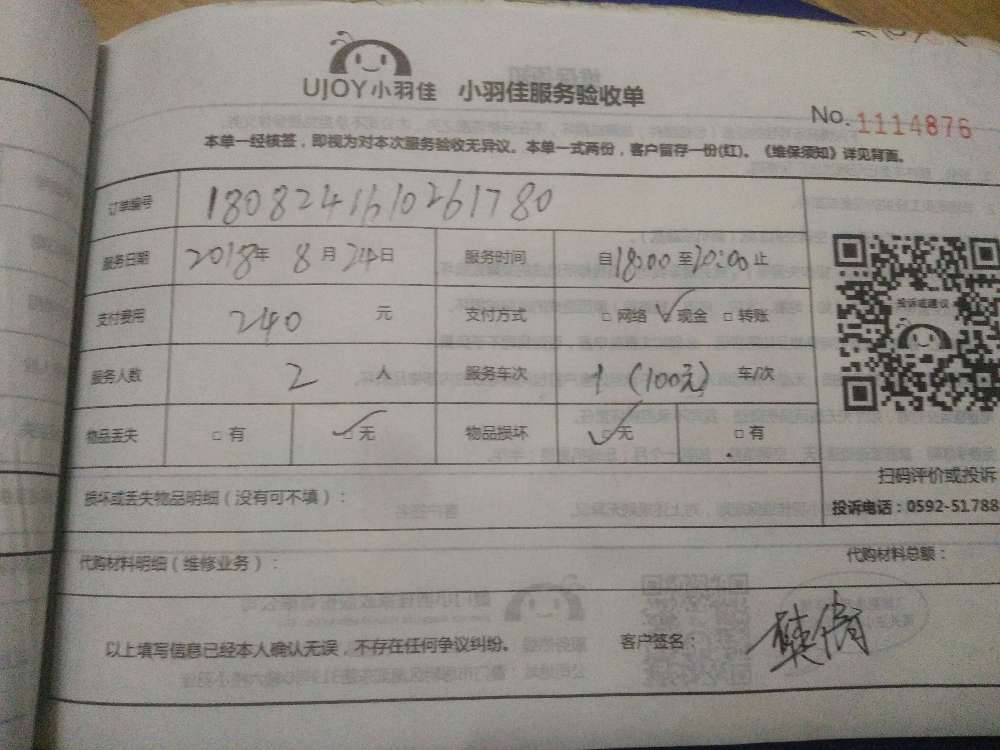 UJOY小羽佳 小羽佳服务验收单
No. 1114876
本单一经核签，即视为对本次服务验收无异议。本单一式两份，客户留存一份(红)。《维保须知》详见背面。
订单编号 1808241610261780
服务日期 2018年 8月 24日 服务时间 自18:00至20:00止
支付费用 240 元 支付方式 □网络 ✓现金 □转账
服务人数 2 人 服务车次 1 (100元) 车/次
物品丢失 □有 ✓无 物品损坏 ✓无 □有
投诉或建议
扫码评价或投诉
投诉电话：0592-51788
损坏或丢失物品明细（没有可不填）：
代购材料明细（维修业务）： 代购材料总额：
以上填写信息已经本人确认无误，不存在任何争议纠纷。 客户签名：